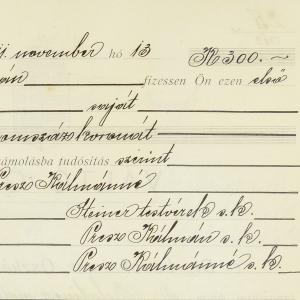 november hó 13 K 300.—
fizessen Ön ezen első
saját
omszáz koronát
ámolásba tudósítás szerint
Presz Kálmánné
Steiner testvérek s.k.
Presz Kálmán s.k.
Presz Kálmánné s.k.